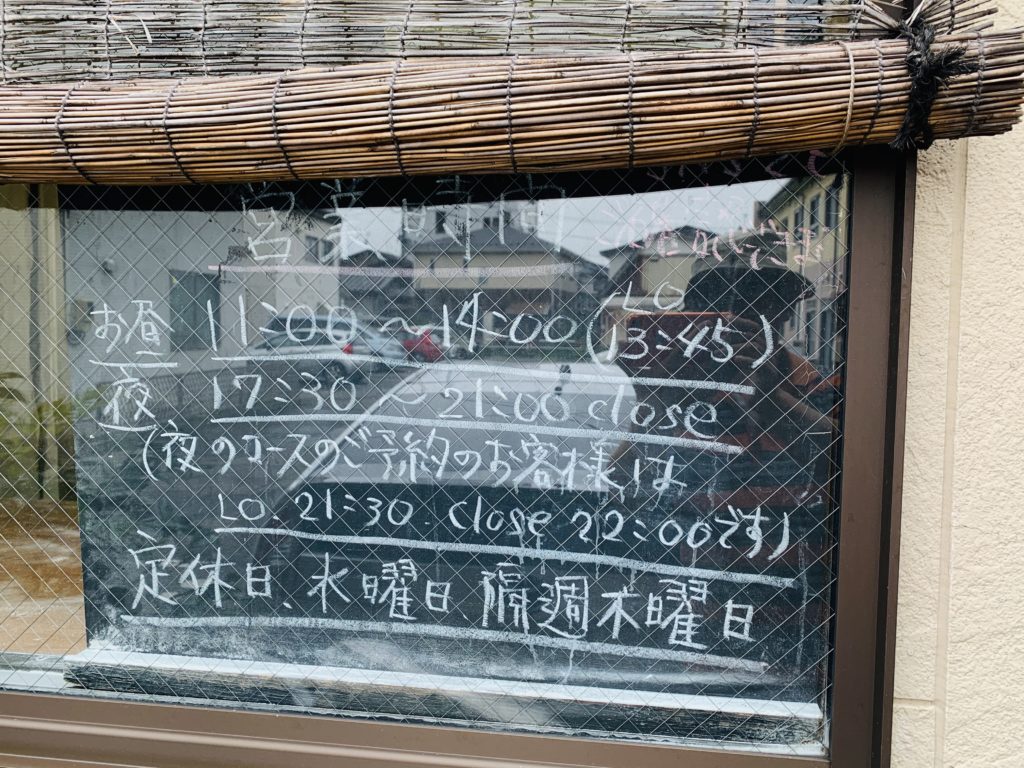 営業時間
お昼 11:00 ~ 14:00 (LO 13:45)
夜 17:30 ~ 21:00 close
(夜のコースのご予約のお客様は
LO 21:30. close 22:00です)
定休日、水曜日、隔週木曜日